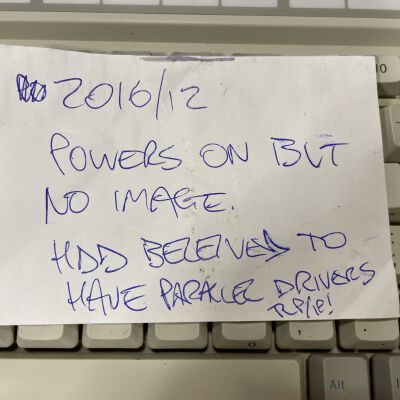 2016/12
POWERS ON BUT
NO IMAGE.
HDD BELEIVED TO
HAVE PARALLEL DRIVERS
TCP/IP!
10
Alt